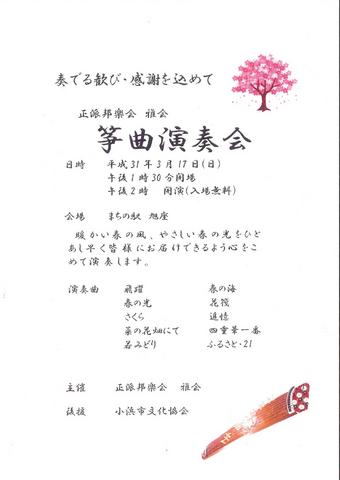 奏でる歓び・感謝を込めて
正派邦楽会 雅会
箏曲演奏会
日時 平成31年3月17日(日)
午後1時30分開場
午後2時 開演(入場無料)
会場 まちの駅 旭座
暖かい春の風、やさしい春の光をひと
あし早く皆様にお届けできるよう心をこ
めて演奏します。
演奏曲 飛躍 春の海
春の光 花筏
さくら 追憶
菜の花畑にて 四重奏一番
若みどり ふるさと・21
主催 正派邦楽会 雅会
後援 小浜市文化協会